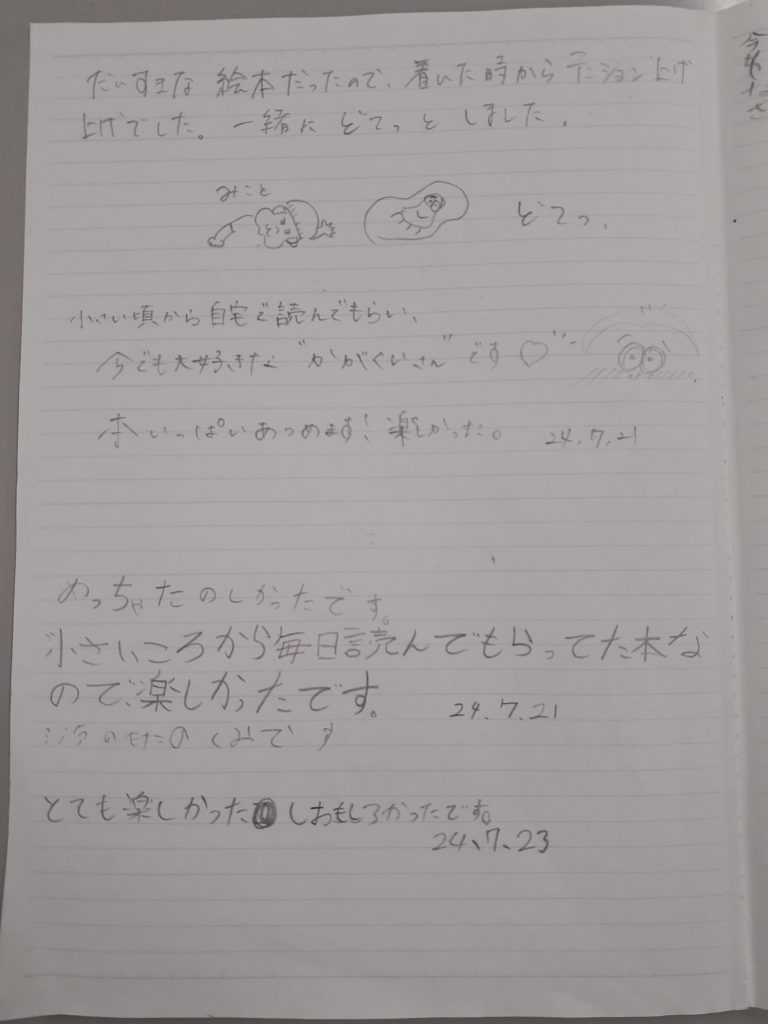 だいすきな 絵本だったので、着いた時から テンション上げ
上げでした。一緒に どてっと しました。
みこと
どてっ、
小さい頃から自宅で読んでもらい、
今でも大好きな "かがくいさん" です ♡
本いっぱいあつめます! 楽しかった。 24.7.21
めっちゃたのしかったです。
小さいころから毎日読んでもらってた本な
ので、楽しかったです。 24.7.21
のくみです
とても楽しかったしおもしろかったです。
24、7、23